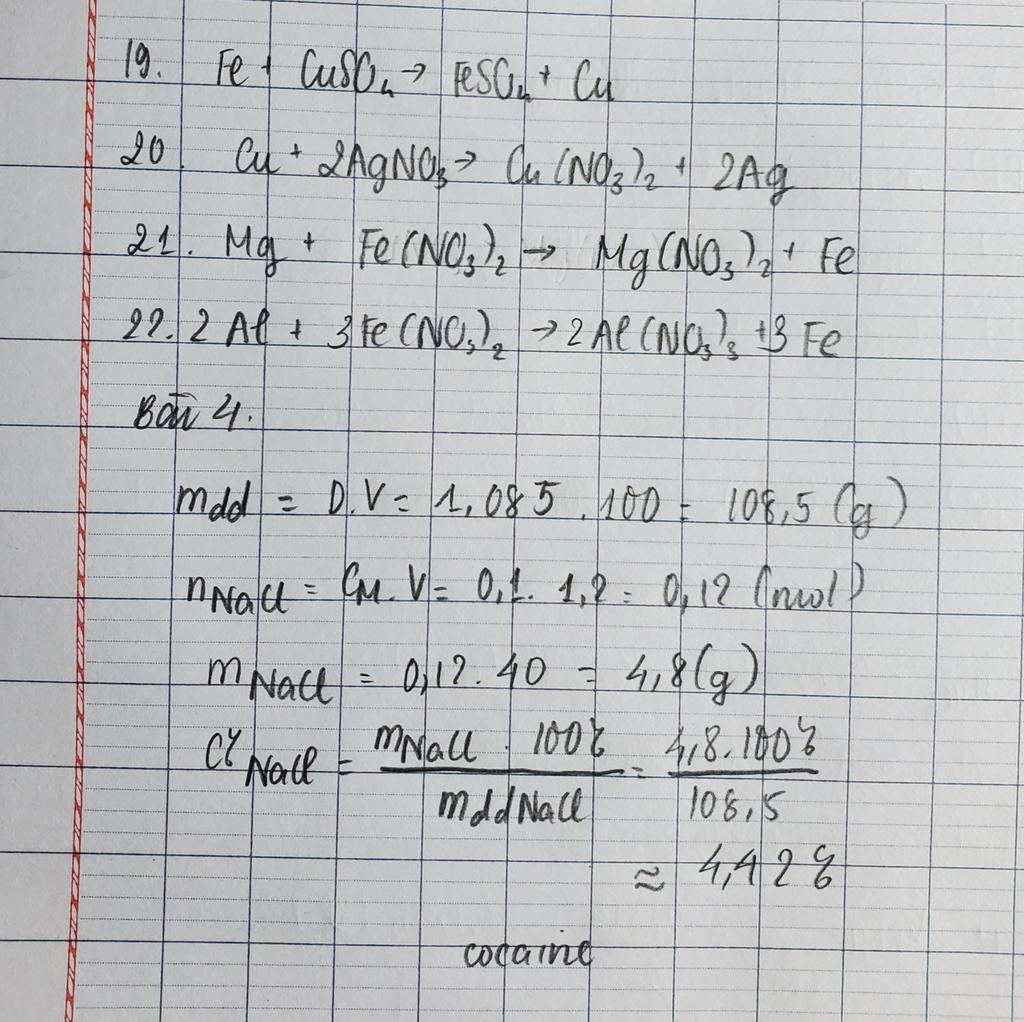 19. Fe + CuSO₄ → FeSO₄ + Cu
20 Cu + 2AgNO₃ → Cu(NO₃)₂ + 2Ag
21. Mg + Fe(NO₃)₂ → Mg(NO₃)₂ + Fe
22. 2Al + 3Fe(NO₃)₂ → 2Al(NO₃)₃ + 3Fe
Bài 4.
mdd = D.V = 1,085 . 100 = 108,5 (g)
nNaCl = CM. V = 0,1. 1,2 = 0,12 (mol)
mNaCl = 0,12. 40 = 4,8 (g)
C%NaCl = mNaCl . 100% / mddNaCl = 4,8. 100% / 108,5
≈ 4,42%
cocaine